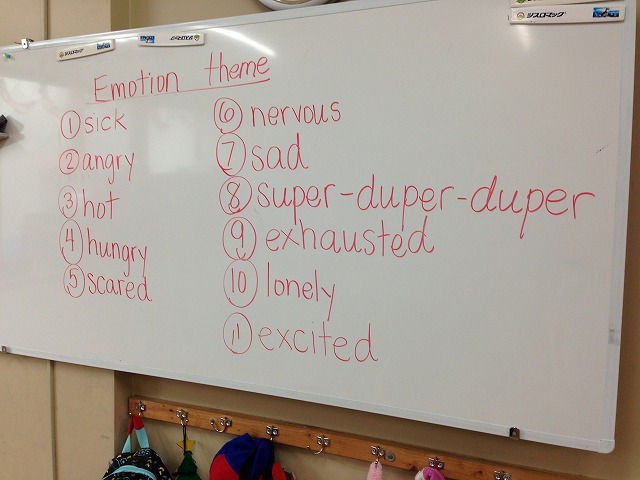 Emotion theme
① sick
② angry
③ hot
④ hungry
⑤ scared
⑥ nervous
⑦ sad
⑧ super-duper-duper
⑨ exhausted
⑩ lonely
⑪ excited